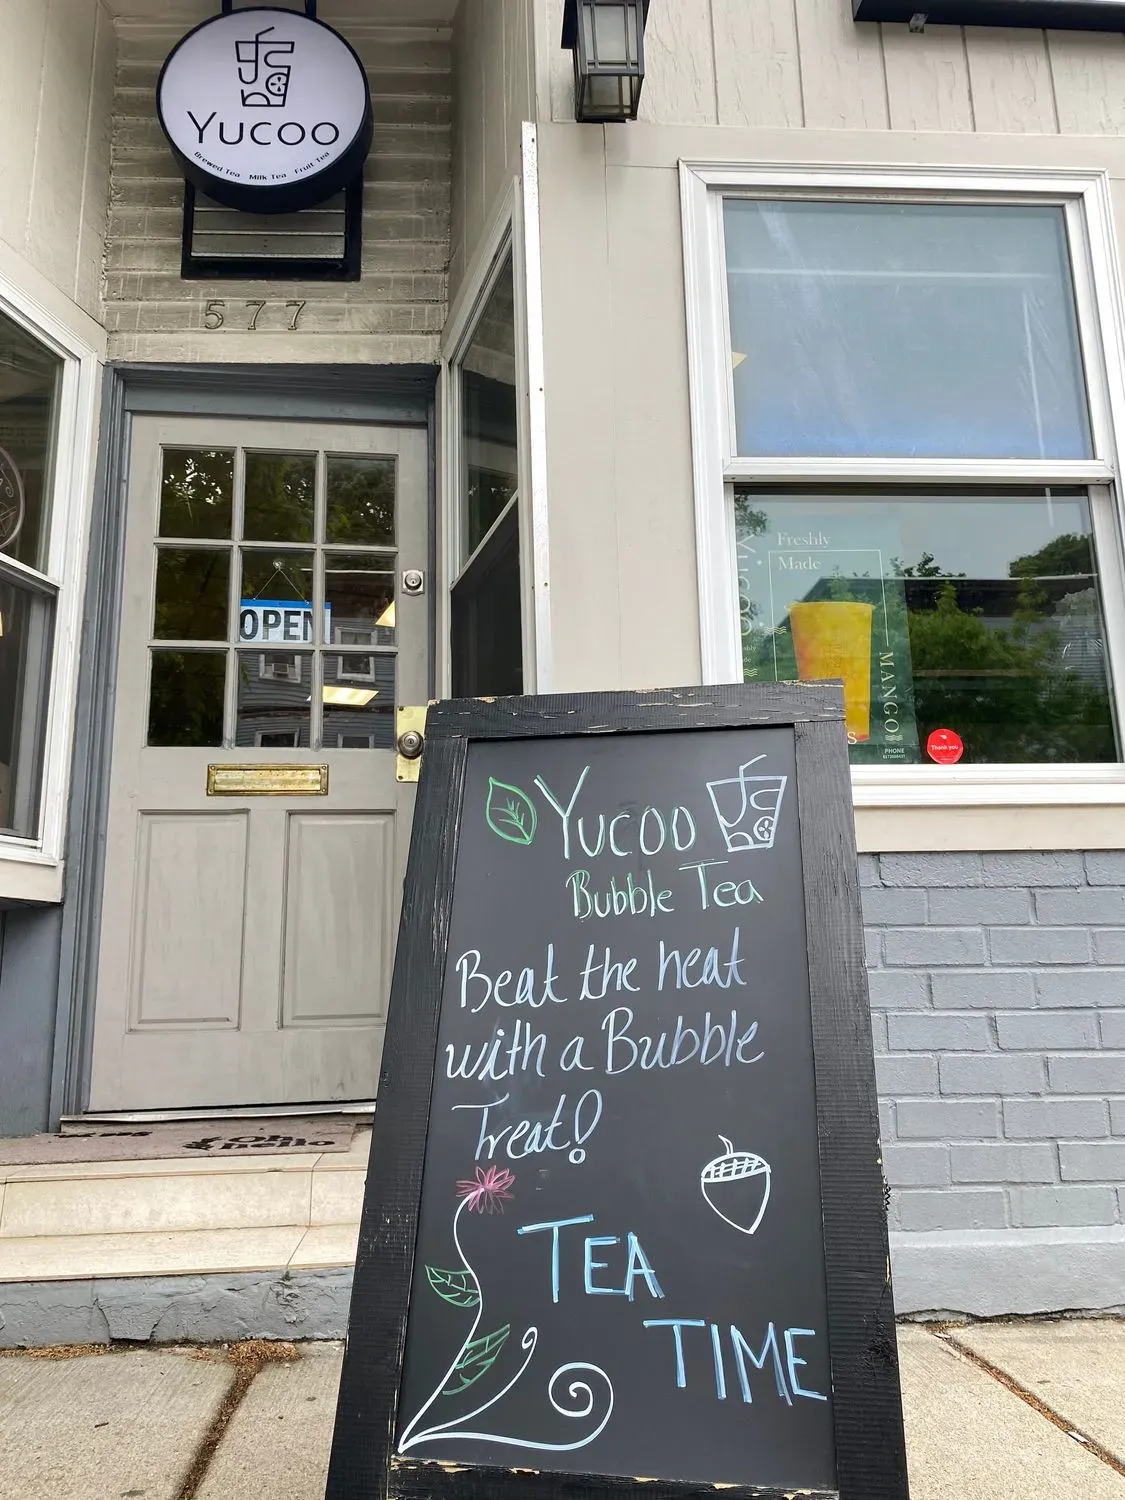 Yucoo
Brewed Tea Milk Tea Fruit Tea
577
OPEN
Freshly
Made
YUCOO
MANGO
PHONE
Thank you
Yucoo
Bubble Tea
Beat the heat
with a Bubble
Treat!
TEA
TIME